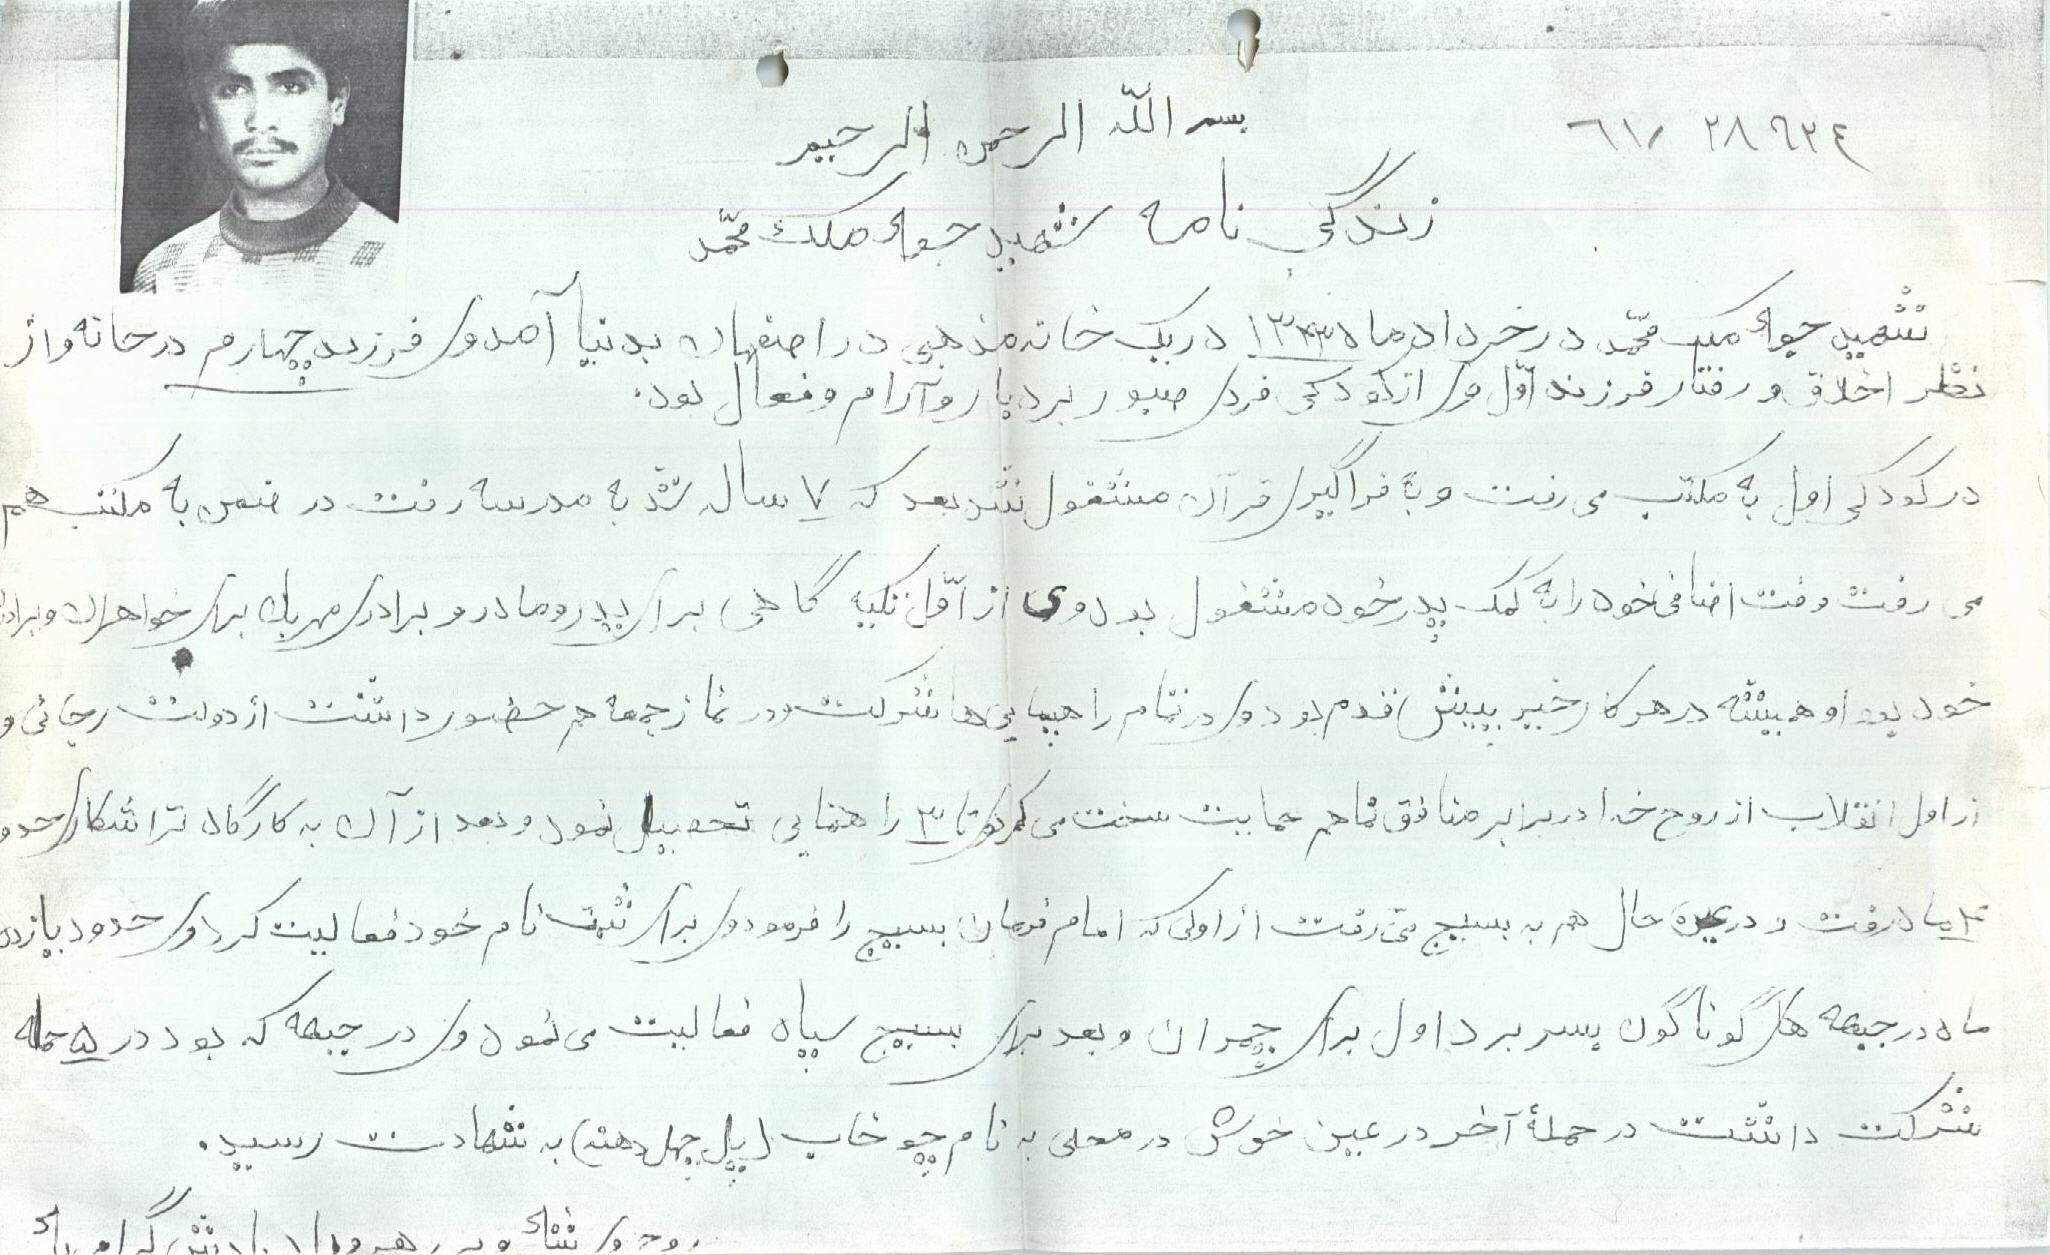 بسم اللّه الرحمن الرحیم
۶۱/ ۲۸۹۳۴
زندگی نامه شهید جواد ملک محمّد
شهید جواد ملک محمّد در خرداد ماه ۱۳۴۳ در یک خانه مذهبی در اصفهان بدنیا آمد وی فرزند چهارم در خانه و از
نظر اخلاق و رفتار فرزند اوّل وی از کودکی فردی صبور بردبار و آرام و فعال بود.
در کودکی اول به مکتب می رفت و به فراگیری قرآن مشغول شد بعد که ۷ ساله شد به مدرسه رفت در ضمن به مکتب هم
می رفت وقت اضافی خود را به کمک پدر خود مشغول بود وی از اوّل تکیه گاهی برای پدر و مادر و برادری مهربان برای خواهران و برادران
خود بود او همیشه در هر کار خیر پیش قدم بود وی در تمام راهپیمایی ها شرکت و در نماز جمعه هم حضور داشت از دولت رجائی و
از اول انقلاب از روح خدا در برابر منافق نماهم حمایت سخت می کرد وی تا ۳ راهنمایی تحصیل نمود و بعد از آن به کارگاه تراشکاری حدود
۴ ماه رفت و در عین حال هم به بسیج می رفت از اولی که امام فرمان بسیج را فرمود وی برای ثبت نام خود فعالیت کرد وی حدود یازده
ماه در جبهه های گوناگون بسر برد اول برای چمران و بعد برای بسیج سپاه فعالیت می نمود وی در جبهه که بود در ۵ حمله
شرکت داشت در حملهٔ آخر در عین خوش در محلی به نام چو خاب (پل چهل دهنه) به شهادت رسید.
روحش شاد و پر رهرو باد یادش گرامی باد